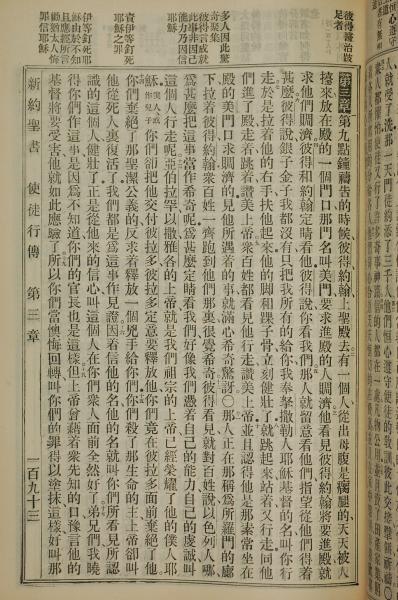 人就受了洗那一天門徒約添了三千人他們恆心遵守使徒的教訓彼此交接擘餅祈禱〇
彼得醫治跛
足者
第三章第九點鐘禱告的時候彼得約翰上聖殿去有一個人從出母腹是瘸腿的天天被人
擡來放在殿的一個門口那門名叫美門要求進殿的人賙濟他看見彼得約翰將要進殿就
求他們賙濟彼得和約翰定睛看他彼得說你看我們那人就留意看他們指望從他們得着
甚麼彼得說銀子金子我都沒有只把我所有的給你我奉拏撒勒人耶穌基督的名叫你行
走於是拉着他的右手扶他起來他的脚和踝子骨立刻健壯了就跳起來站着又行走同他
們進了殿走着跳着讚美上帝衆百姓都看見他行走讚美上帝並且認得他是那素常坐在
殿的美門口求賙濟的見他所遇着的事就滿心希奇驚訝〇那人正在那稱爲所羅門的廊
多人因此驚
奇聚集
彼得言成就
此事非因己
能力乃因信
耶穌
下拉着彼得約翰衆百姓一齊跑到他們那裏很覺希奇彼得看見就對百姓說以色列人哪
爲甚麼把這事當作希奇呢爲甚麼定睛看我們好像我們憑着自己的能力自己的虔誠叫
這個人行走呢亞伯拉罕以撒雅各的上帝就是我們祖宗的上帝已經榮耀了他的僕人耶
責伊等釘死
耶穌之罪
穌僕人或作兒子你們卻把他交付彼拉多彼拉多定意要釋放他你們竟在彼拉多面前棄絕了他
你們棄絕了那聖潔公義的反求着釋放一個兇手給你們你們殺了那生命的主上帝卻叫
他從死人裏復活了我們都是爲這事作見證因着信他的名他的名就叫你們所看見所認
識的這個人健壯了正是從他來的信心叫這個人在你們衆人面前全然好了弟兄們我曉
伊等釘死耶
穌由於不知
且應經所言
勸猶太人悔
罪信耶穌
得你們作這事是因爲不知道你們的官長也是這樣但上帝曾藉着衆先知的口豫言他的
基督將要受害他就如此應驗了所以你們當懊悔回轉叫你們的罪得以塗抹這樣好叫那
新約聖書 使徒行傳 第三章 一百九十三